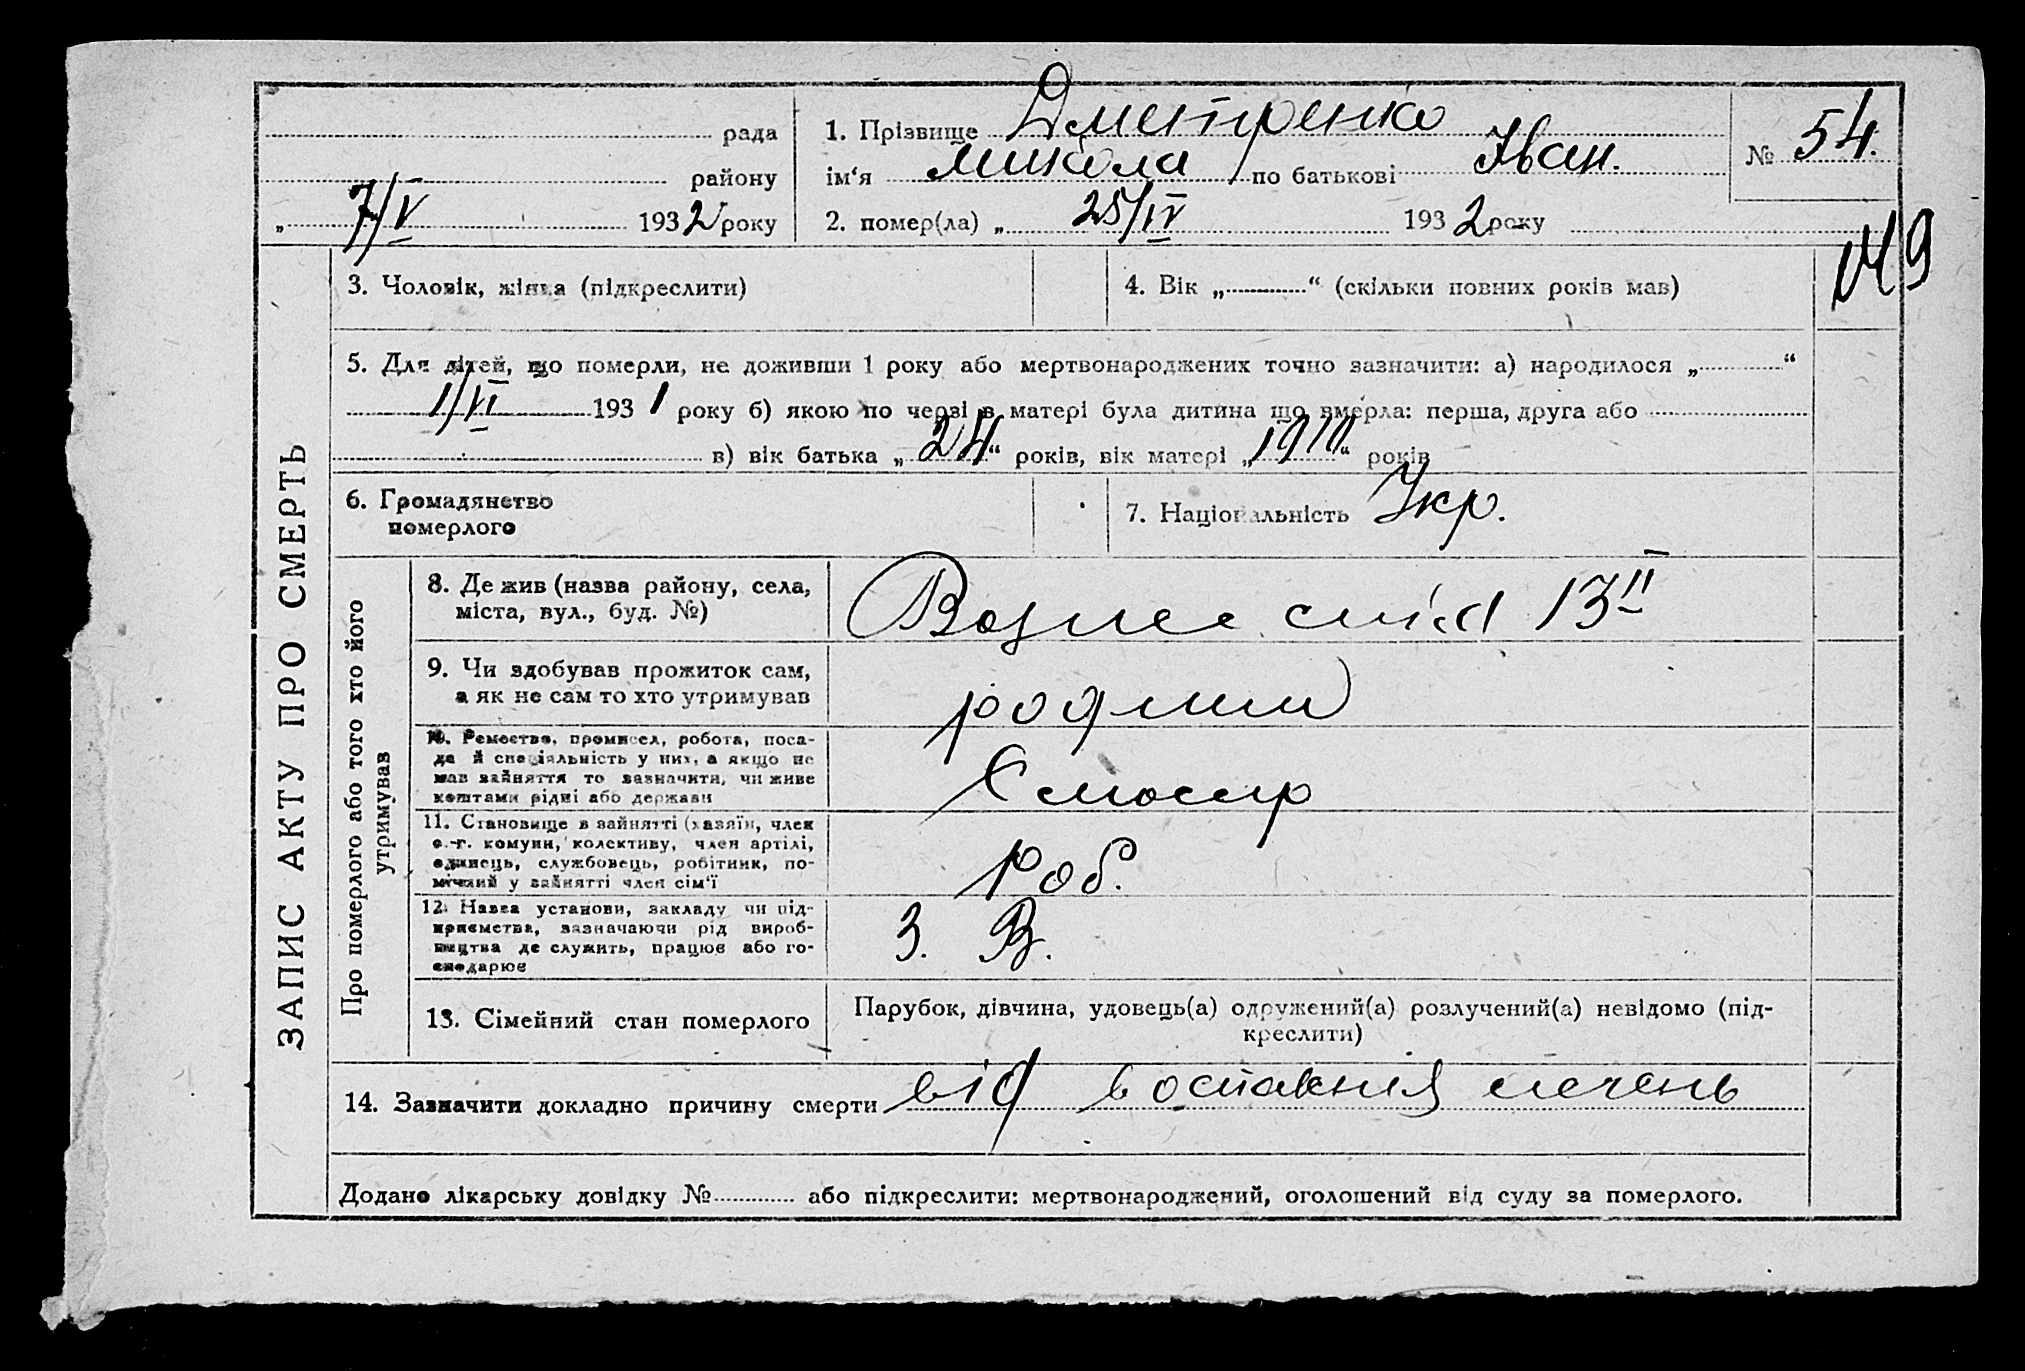 рада
району
„ 7/V 1932 року
1. Прізвище Дметренко
ім'я Микола по батькові Іван.
2. помер(ла) „ 25/IV 1932 року
№ 54.
149
ЗАПИС АКТУ ПРО СМЕРТЬ
3. Чоловік, жінка (підкреслити)
4. Вік „ “ (скільки повних років мав)
5. Для дітей, що померли, не доживши 1 року або мертвонароджених точно зазначити: а) народилося „ “
1/VI 1931 року б) якою по черзі в матері була дитина що вмерла: перша, друга або
в) вік батька „24“ років, вік матері „1910“ років
6. Громадянство
померлого
7. Національність Укр.
Про померлого або того хто його
утримував
8. Де жив (назва району, села,
міста, вул., буд. №)
13
9. Чи здобував прожиток сам,
а як не сам то хто утримував
родини
10. Ремество, промисел, робота, поса-
да й спеціяльність у них, а якщо не
мав зайняття то зазначити, чи живе
коштами рідні або держави
Слюсар
11. Становище в зайнятті (хазяїн, член
с.-г. комуни, колективу, член артілі,
одинець, службовець, робітник, по-
мічний у зайнятті член сім'ї
Роб.
12. Назва установи, закладу чи під-
приємства, зазначаючи рід вироб-
ництва де служить, працює або го-
сподарює
З. В.
13. Сімейний стан померлого
Парубок, дівчина, удовець(а) одружений(а) розлучений(а) невідомо (під-
креслити)
14. Зазначити докладно причину смерти від
Додано лікарську довідку № або підкреслити: мертвонароджений, оголошений від суду за померлого.